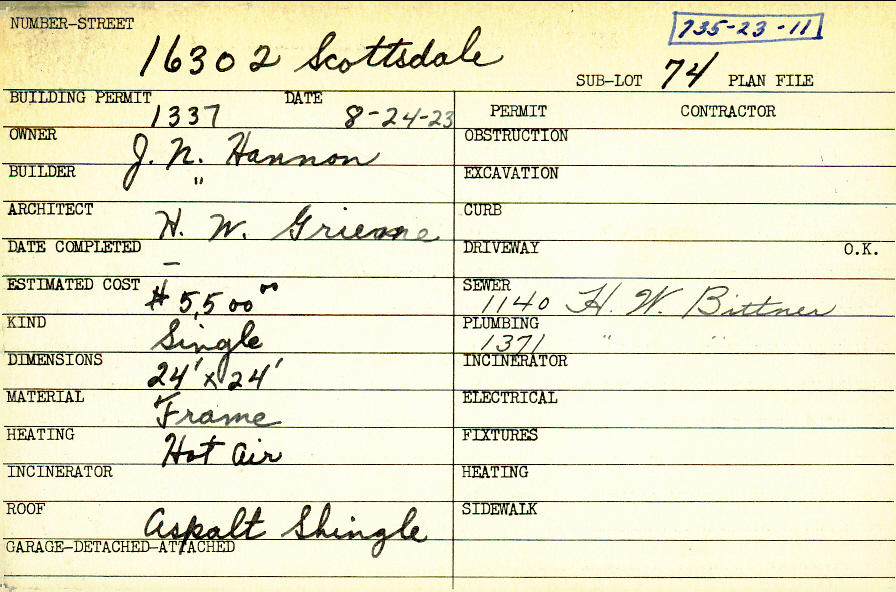 NUMBER-STREET
735-23-11
16302 Scottsdale
SUB-LOT 74 PLAN FILE
BUILDING PERMIT 1337 DATE 8-24-23
PERMIT CONTRACTOR
OWNER J. N. Hannon
OBSTRUCTION
BUILDER "
EXCAVATION
ARCHITECT H. W. Grieme
CURB
DATE COMPLETED –
DRIVEWAY O.K.
ESTIMATED COST $5,500 00
SEWER 1140 H. W. Bittner
KIND Single
PLUMBING 1371 " "
DIMENSIONS 24' x 24'
INCINERATOR
MATERIAL Frame
ELECTRICAL
HEATING Hot Air
FIXTURES
INCINERATOR
HEATING
ROOF Aspalt Shingle
SIDEWALK
GARAGE-DETACHED-ATTACHED